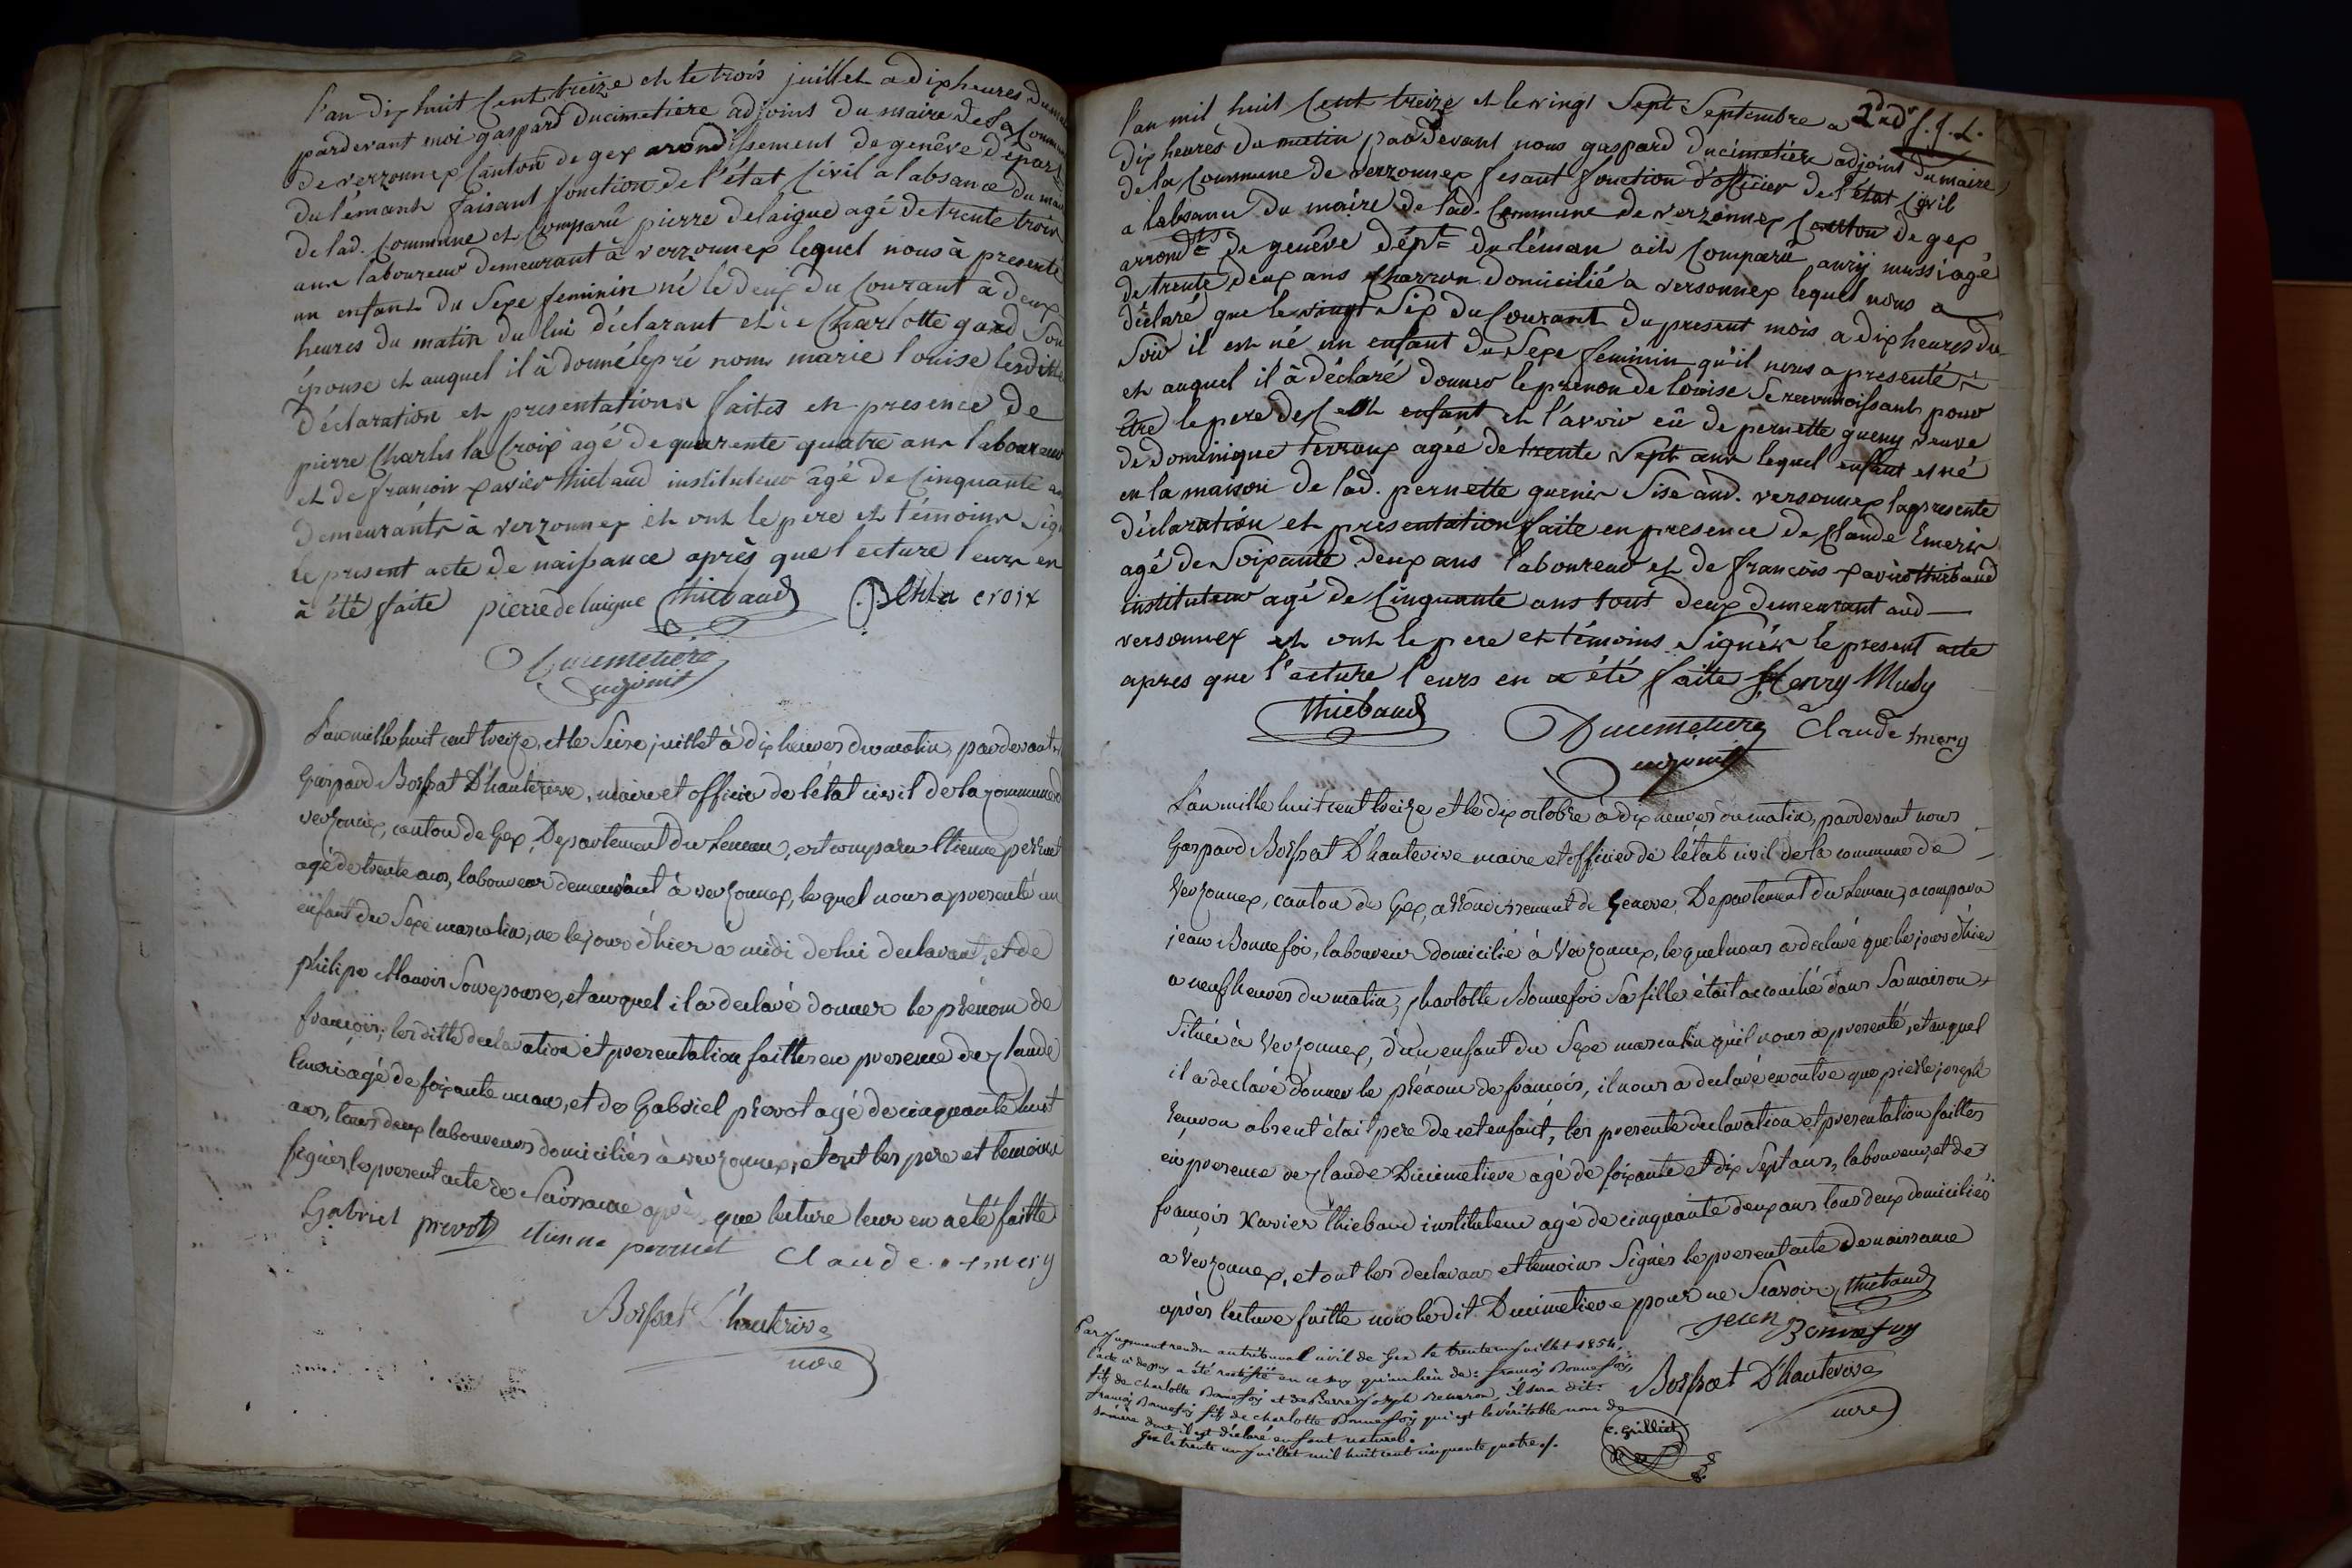 l'an dix huit Cent treize et le trois juillet a dix heures du
pardevant moi gaspard Ducimetiere adjoint du maire de la Commune
de verzonnex Canton de gex arondissement de genève dépar
du léman faisant fonction de l'état Civil a labsance du maire
de lad. Commune et Comparû pierre delaigue agé de trente trois
ans laboureur demeurant à verzonnex lequel nous à presenté
un enfant du Sexe feminin né le deux du Courant a deux
heures du matin du lui déclarant et de Charlotte gard Son
épouse et auquel il à donné le pré nom marie louise lesdittes
déclaration et presentations faites en presence de
pierre Charles la Croix agé de quarente quatre ans laboureur
et de francois xavier thiebaud instituteur âgé de Cinquante
demeurants à verzonnex et ont le pere et témoins signé
le present acte de naissance après que lecture leurs en
à été faite pierre de laigue thiebaud la croix
Ducimetiere
adjoint
L'an mille huit cent treize, et le Seize juillet à dix heures du matin, pardevant
Gaspard Bossat D'hauterive, maire et officier de l'état civil de la commune d
verzonnex, canton de Gex, Departement du Leman, est comparu Etienne perruet
agé de trente ans, laboureur demeurant à verzonnex, le quel nous a presenté un
enfant du Sexe masculin, né le jour d'hier a midi de lui declarant, et de
philipe Son epouse, et au quel il a declaré donner le prénom de
françois; les ditte declaration et presentation faittes en presence de Claude
Emeri agé de soixante un an, et de Gabriel prevot agé de cinquante huit
ans, tous deux laboureurs domiciliés à verzonnex, et ont les pere et temoins
signés le present acte de Naissance après que lecture leur en a été faitte
Gabriel prevot etienne perruet Claude emery
Bossat D'hauterive
mre
2d ndr f. J. L.
l'an mil huit Cent treize et le vingt Sept Septembre a
dix heures du matin pardevant nous gaspard ducimetiere adjoint du maire
de la Commune de verzonnex fesant fonction d'officier de l'état Civil
a labsance du maire de lad. Commune de verzonnex Canton de gex
arrondts de genêve dépt du léman a été Comparû anrÿ mussi agé
de trente deux ans charron domicilié a versonnex lequel nous a
déclaré que le vingt Six du Courant du present mois a dix heures du
Soir il est né un enfant du Sexe feminin qu'il nous a presenté
et auquel il à déclaré donner le prenon de louise Se reconnoissant pour
être le pere de cest enfant et l'avoir eû de pernette gueny veuve
de dominique terroux agée de trente Sept ans lequel enfant est né
en la maison de lad. pernette Sise aud. versonnex la presente
déclaration et presentation faite en presence de Claude Emerix
agé de Soixante deux ans laboureur et de françois xavier thiebaud
instituteur agé de Cinquante ans tout deux demeurant aud
versonnex et ont le pere et témoins Signés le present acte
apres que l'ecture leurs en a été faite Henry Musy
thiebaud Ducimetiere Claude Emery
adjoint
L'an mille huit cent treize et le dix octobre à dix heures du matin, pardevant nous
Gaspard Bossat D'hauterive maire et officier de l'état civil de la commune de
Verzonnex, canton de Gex, arrondissement de Geneve, Departement du Leman, a comparu
jean Bonnefoi, laboureur domicilié à Verzonnex, le quel nous a declaré que le jour d'hier
a neuf heures du matin, Charlotte Bonnefoi Sa fille était accouché dans Sa maison
Située à Verzonnex, d'un enfant du Sexe masculin qu'il nous a presenté, et auquel
il a declaré donner le prénom de françois, il nous a declaré en outre que pierre joseph
absent était pere de cet enfant, les presente declaration et presentation faittes
en presence de Claude Ducimetiere agé de soixante et dix Sept ans, laboureur, et de
françois Xavier thiebaud instituteur agé de cinquante deux ans tous deux domiciliés
a Verzonnex, et ont les declarans et temoins Signés le present acte de naissance
après lecture faitte non le dit Ducimetiere pour ne Scavoir thiebaud
jean Bonnefoy
Bossat D'hauterive
mre
Par jugement rendu au tribunal civil de Gex le trente un juillet 1854,
l'acte ci dessus a été rectifié en ce sens qu'au lieu de: françois Bonnefoy,
fils de charlotte Bonnefoy et de Pierre Joseph , il sera dit:
françois Bonnefoy fils de charlotte Bonnefoy qui est le véritable nom de
sa mère dont il est déclaré enfant naturel.
Gex le trente un juillet mil huit cent cinquante quatre ./.
C. Grilliet